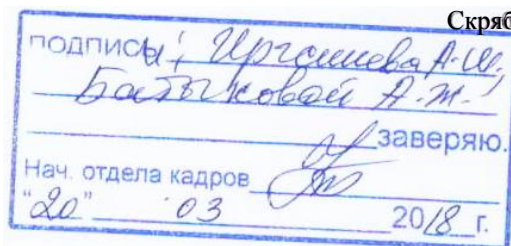 Скряб
подписы; Иргашева А.Ш.,
Батыковой А.Ж.
заверяю.
Нач. отдела кадров
"20" 03 2018 г.